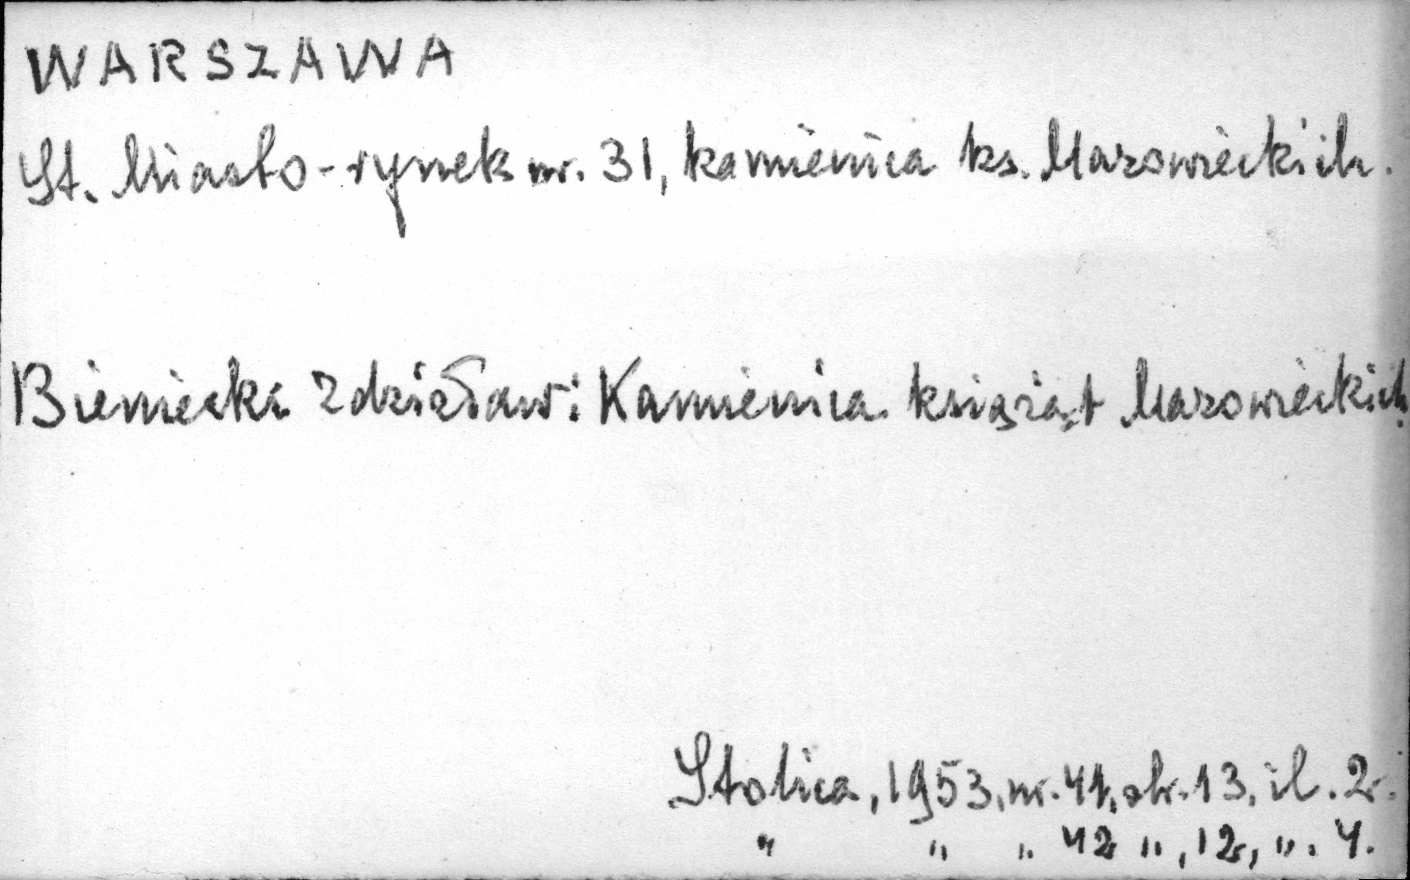 WARSZAWA
St. Miasto - rynek nr. 31, kamienica ks. Mazowieckich.
Bieniecki Zdzisław: Kamienica książąt Mazowieckich.
Stolica, 1953, nr. 41, str. 13, il. 2.
" " " 42 ", 12, ". 4.